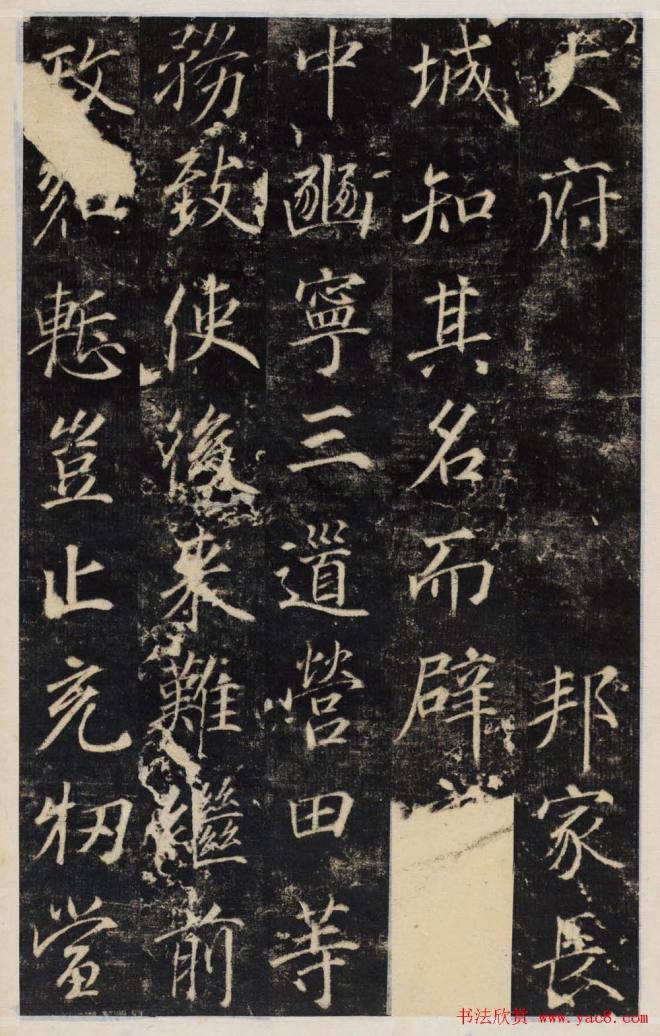 大府 邦家長
城知其名而辟
中豳寧三道營田等
務致使後来難繼前
政慙豈止充牣當
书法欣赏 www.yac8.com